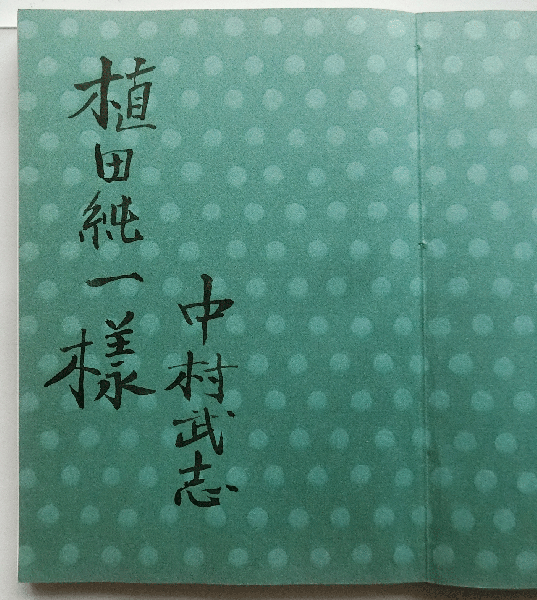 植田純一様
中村武志